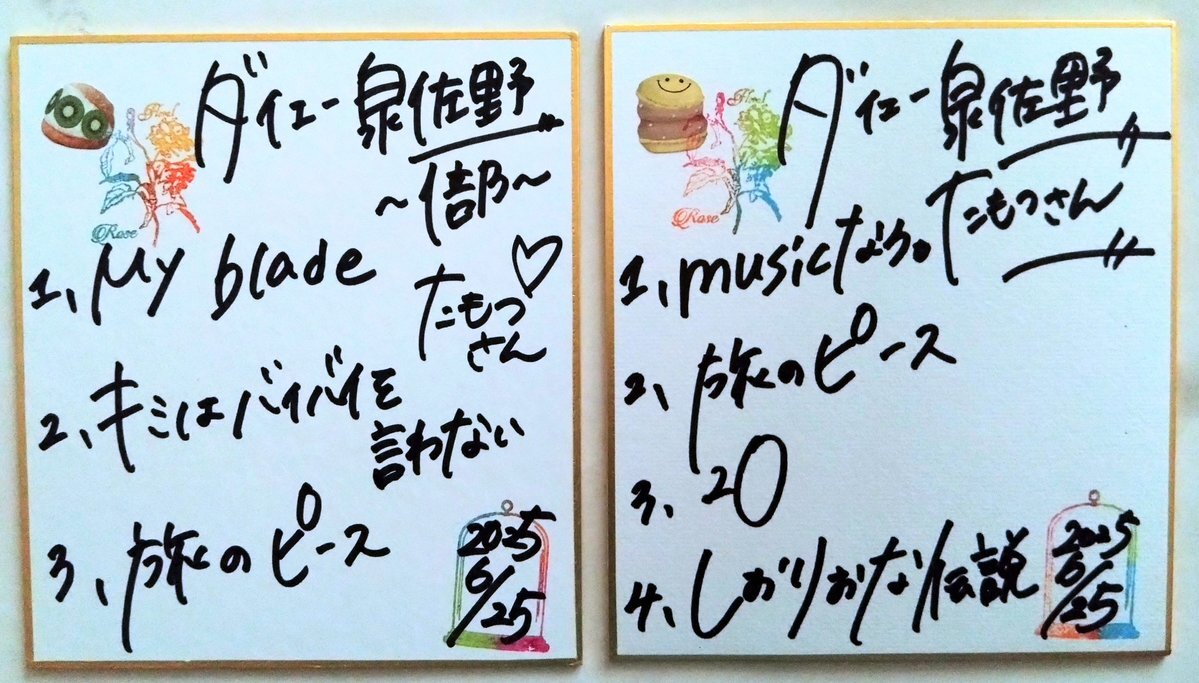 ダイエー泉佐野
～1部～
1、My blade
たもつ
さん
2、キミはバイバイを
言わない
3、旅のピース
2025
6/25
Rose
ダイエー泉佐野
たもつさん
1、musicなら。
2、旅のピース
3、20
4、しおりおなり伝説
2025
6/25
Rose